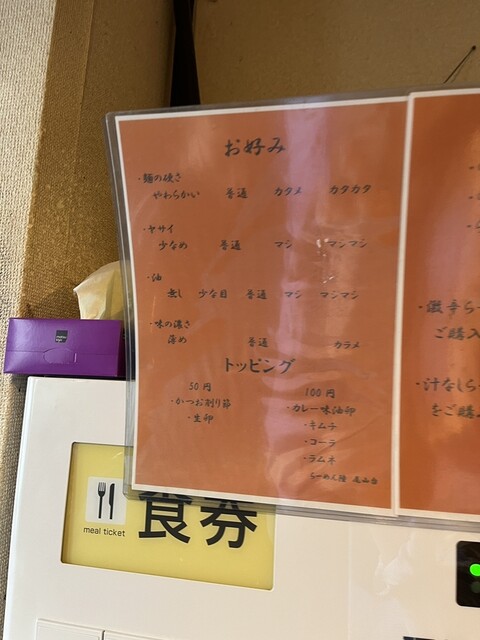 お好み
・麺の硬さ
やわらかい 普通 カタメ カタカタ
・ヤサイ
少なめ 普通 マシ マシマシ
・油
無し 少な目 普通 マシ マシマシ
・味の濃さ
薄め 普通 カラメ
トッピング
50円
・かつお削り節
・生卵
100円
・カレー味油卵
・キムチ
・コーラ
・ラムネ
・激辛らー
ご購入
・汁なしらー
をご購入
meal ticket
食券